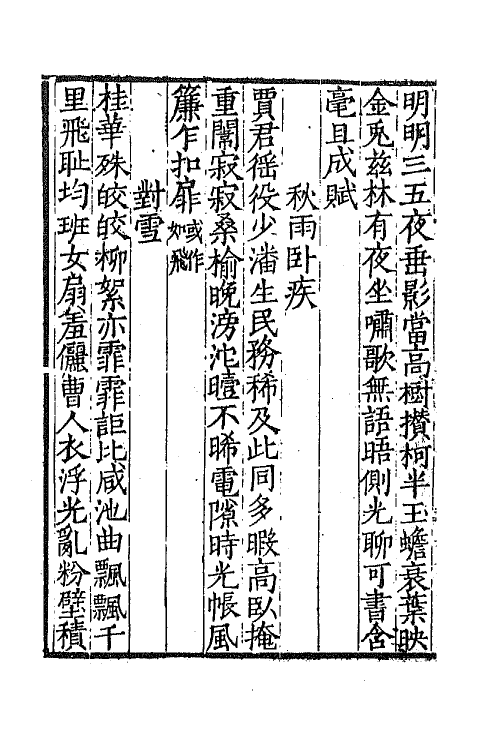 明明三五夜垂影當高樹攢柯半玉蟾裛葉映
金兎兹林有夜坐嘯歌無語晤側光聊可書含
毫且成賦
秋雨卧疾
賈君徭役少潘生民務稀及此同多暇高臥掩
重闈寂寂桑榆晚滂沱曀不晞電隙時光帳風
簾乍扣扉或作如飛
對雪
桂華殊皎皎柳絮亦霏霏詎比咸池曲飄飄千
里飛耻均班女扇羞儷曹人衣浮光亂粉壁積